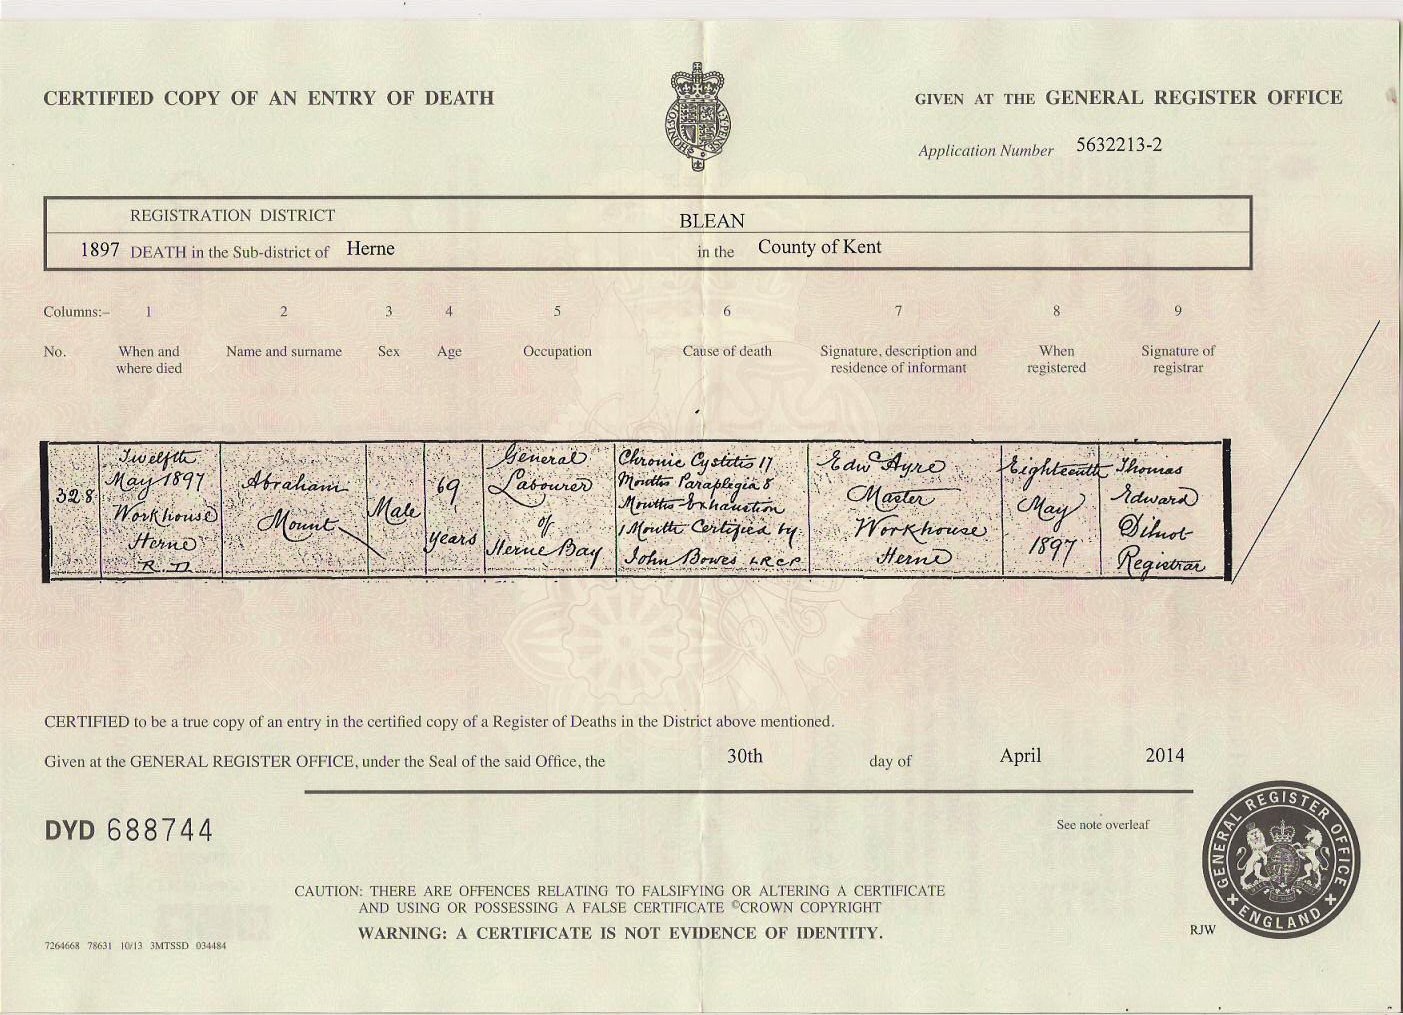 CERTIFIED COPY OF AN ENTRY OF DEATH
GIVEN AT THE GENERAL REGISTER OFFICE
Application Number 5632213-2
REGISTRATION DISTRICT BLEAN
1897 DEATH in the Sub-district of Herne in the County of Kent
Columns:- 1 2 3 4 5 6 7 8 9
No.
When and
where died
Name and surname
Sex
Age
Occupation
Cause of death
Signature, description and
residence of informant
When
registered
Signature of
registrar
328
Twelfth
May 1897
Workhouse
Herne
R. D
Abraham
Mount
Male
69
years
General
Labourer
of
Herne Bay
Chronic Cystitis 17
Months Paraplegia 8
Months Exhaustion
1 Month Certified by
John Bowes LRCP
Edwd Ayre
Master
Workhouse
Herne
Eighteenth
May
1897
Thomas
Edward
Dilnot
Registrar
CERTIFIED to be a true copy of an entry in the certified copy of a Register of Deaths in the District above mentioned.
Given at the GENERAL REGISTER OFFICE, under the Seal of the said Office, the 30th day of April 2014
DYD 688744
See note overleaf
CAUTION: THERE ARE OFFENCES RELATING TO FALSIFYING OR ALTERING A CERTIFICATE
AND USING OR POSSESSING A FALSE CERTIFICATE ©CROWN COPYRIGHT
WARNING: A CERTIFICATE IS NOT EVIDENCE OF IDENTITY.
7264668 78631 10/13 3MTSSD 034484
RJW
GENERAL REGISTER OFFICE
ENGLAND